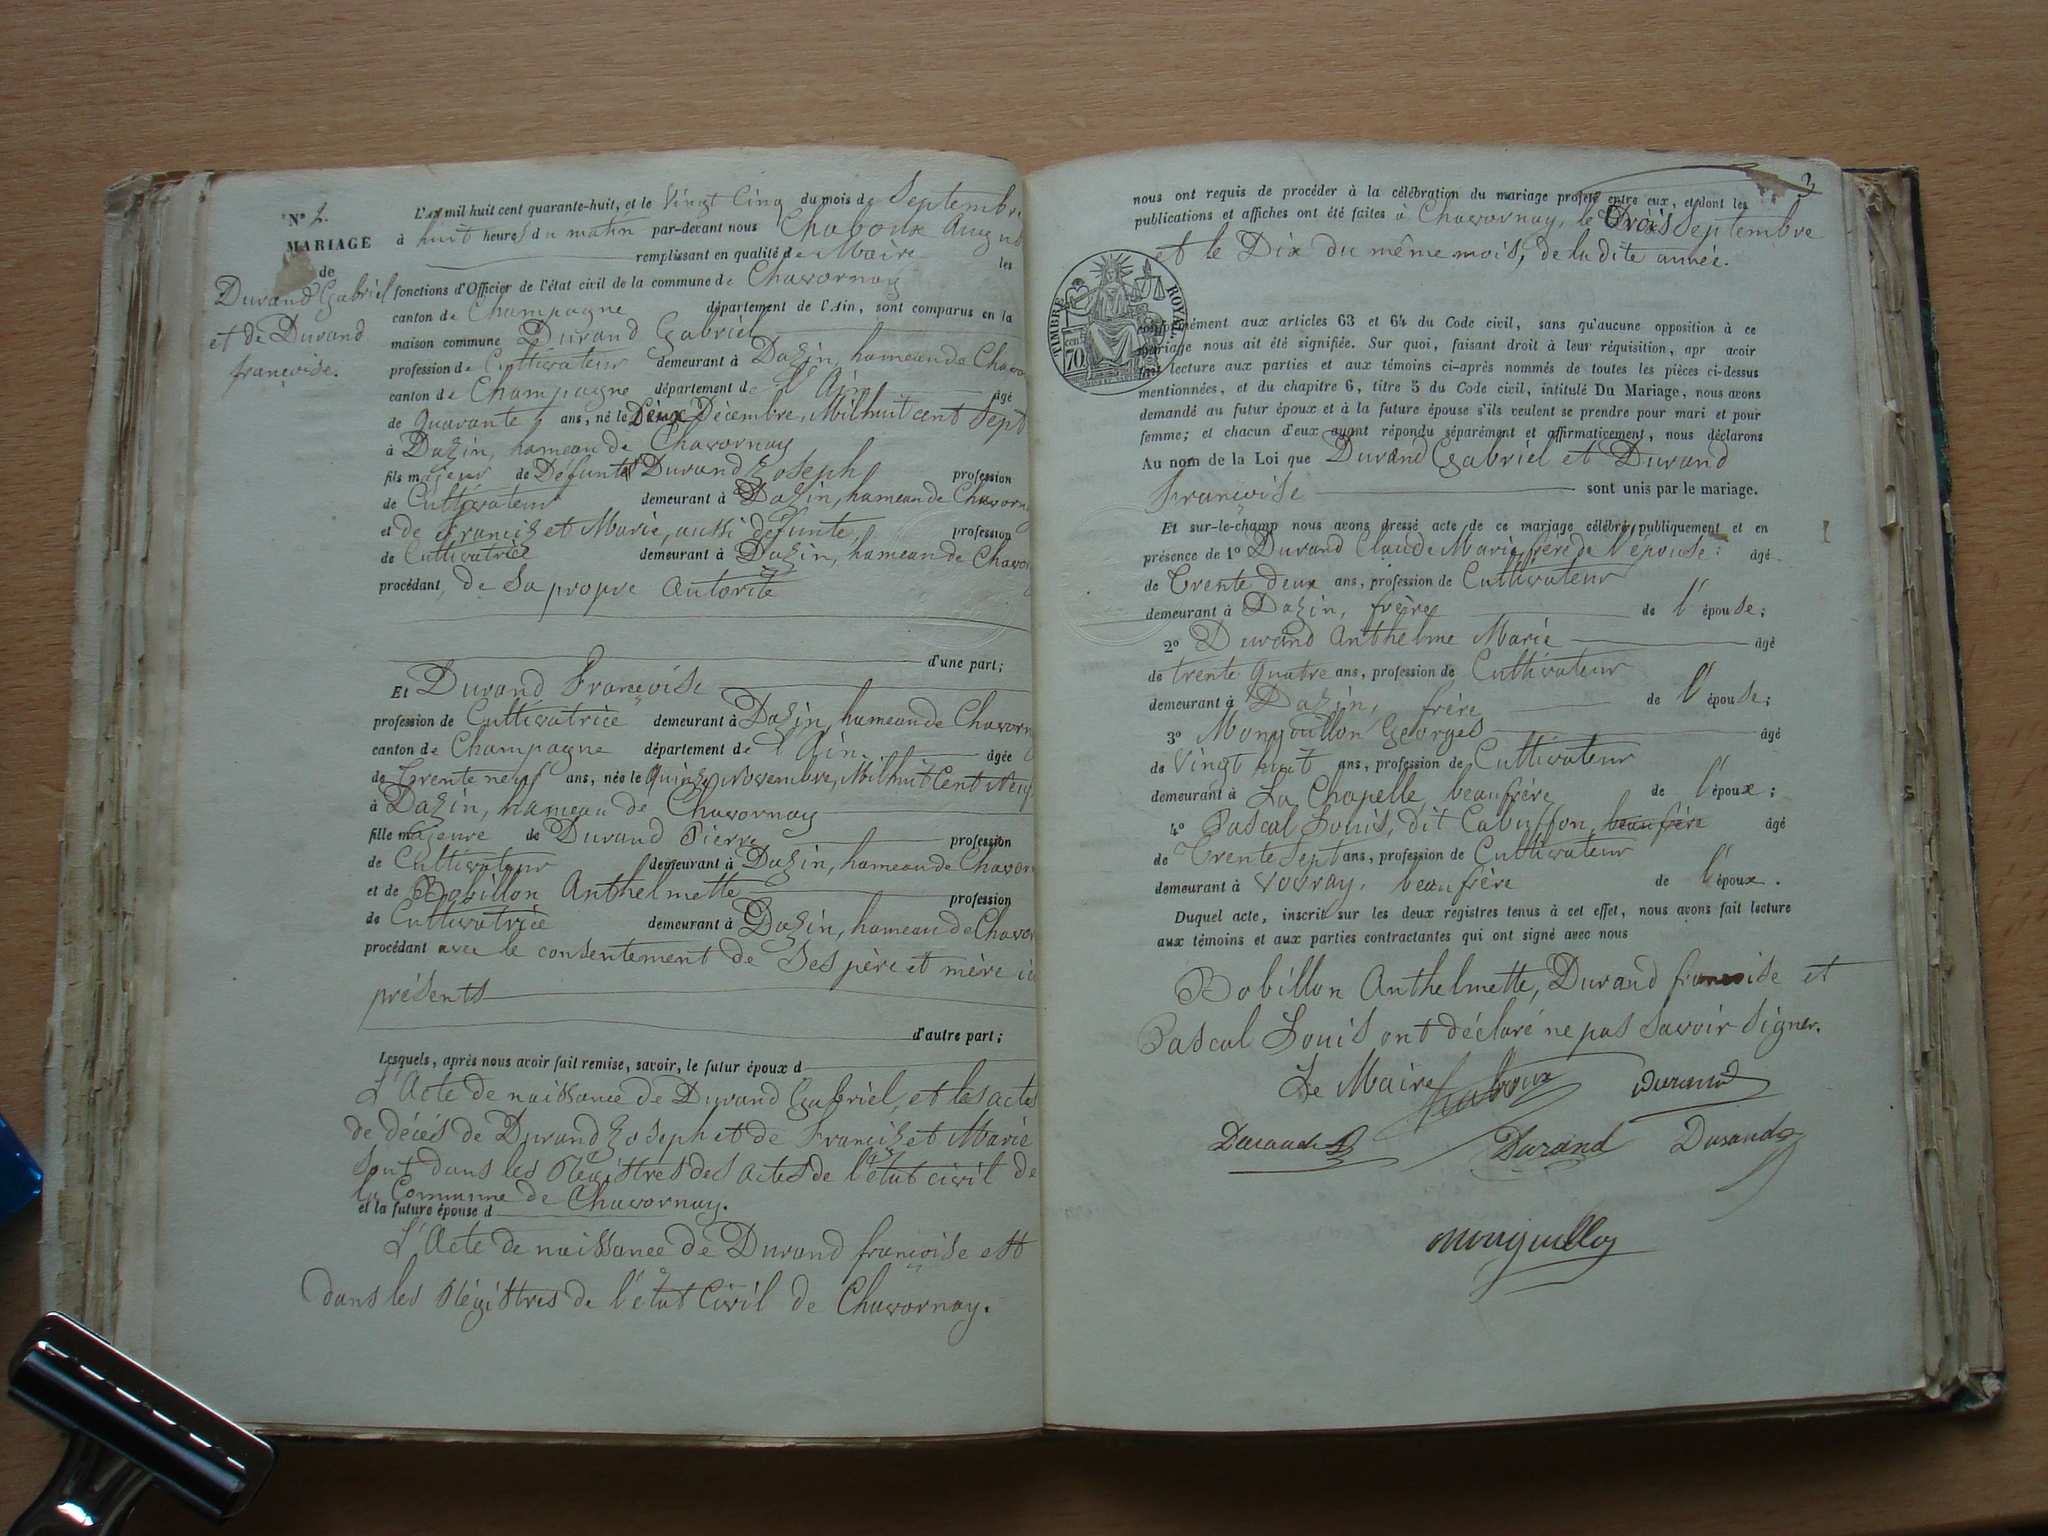 N° 2.
MARIAGE
de
Durand Gabriel
et de Durand
françoise.
L'an mil huit cent quarante-huit, et le Vingt Cinq du mois de Septembre
à huit heures du matin par-devant nous Chaboux
remplissant en qualité de Maire les
fonctions d'Officier de l'état civil de la commune de Chavornay
canton de Champagne département de l'Ain, sont comparus en la
maison commune Durand Gabriel
profession de Cultivateur demeurant à Dazin, hameau de
canton de Champagne département de l'Ain âgé
de Quarante ans, né le Deux Décembre, Mil huit cent Sept
à Dazin, hameau de Chavornay
fils majeur de Défunt Durand Joseph profession
de Cultivateur demeurant à Dazin, hameau de
et de Francizet Marie, aussi défunte, profession
de Cultivatrice demeurant à Dazin, hameau de
procédant de Sa propre Autorité
d'une part;
Et Durand Françoise
profession de Cultivatrice demeurant à Dazin, hameau de
canton de Champagne département de l'Ain âgée
de Trente neuf ans, née le Quinze Novembre, Mil huit Cent Neuf
à Dazin, hameau de Chavornay
fille majeure de Durand Pierre profession
de Cultivateur demeurant à Dazin, hameau de
et de Bobillon Anthelmette profession
de Cultivatrice demeurant à Dazin, hameau de
procédant avec le consentement de Ses père et mère ici
présents
d'autre part;
Lesquels, après nous avoir fait remise, savoir, le futur époux d
L'Acte de naissance de Durand Gabriel, et les actes
de décès de Durand Joseph et de Francizet Marie
sont dans les Régistres des actes de l'état civil de
la Commune de Chavornay.
et la future épouse d
L'Acte de naissance de Durand françoise est
dans les Régistres de l'état Civil de Chavornay.
3
nous ont requis de procéder à la célébration du mariage projeté entre eux, et dont les
publications et affiches ont été faites à Chavornay, le Trois Septembre
et le Dix du même mois, de ludite année.
TIMBRE ROYAL
70
conformément aux articles 63 et 64 du Code civil, sans qu'aucune opposition à ce
mariage nous ait été signifiée. Sur quoi, faisant droit à leur réquisition, apr avoir
fait lecture aux parties et aux témoins ci-après nommés de toutes les pièces ci-dessus
mentionnées, et du chapitre 6, titre 5 du Code civil, intitulé Du Mariage, nous avons
demandé au futur époux et à la future épouse s'ils veulent se prendre pour mari et pour
femme; et chacun d'eux ayant répondu séparément et affirmativement, nous déclarons
Au nom de la Loi que Durand Gabriel et Durand
françoise sont unis par le mariage.
Et sur-le-champ nous avons dressé acte de ce mariage célébré publiquement et en
présence de 1° Durand Claude Marie, frère de l'épouse: âgé
de Trente deux ans, profession de Cultivateur
demeurant à Dazin, frère de l'épouse;
2° Durand Anthelme Marie âgé
de trente Quatre ans, profession de Cultivateur
demeurant à Dazin, frère de l'épouse;
3° Monguillon Georges âgé
de Vingt huit ans, profession de Cultivateur
demeurant à La Chapelle, beaufrère de l'époux;
4° Pascal Louis, dit Cabuffon, beaufrère âgé
de Trente Sept ans, profession de Cultivateur
demeurant à Vovray, beaufrère de l'époux.
Duquel acte, inscrit sur les deux registres tenus à cet effet, nous avons fait lecture
aux témoins et aux parties contractantes qui ont signé avec nous
Bobillon Anthelmette, Durand françoise et
Pascal Louis ont déclaré ne pas Savoir Signer.
Le Maire Chaboux Durand
Durand Durand Durand